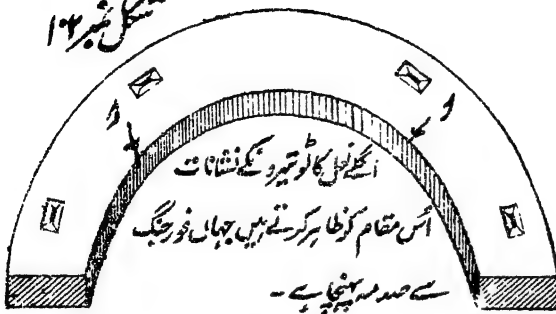 شکل نمبر ۱۰۲
اگلے نعل کا ٹو تیرو نکے نشانات
اُس مقام کو ظاہر کرتے ہیں جہاں فورجنگ
سے صدمہ پہنچتا ہے -